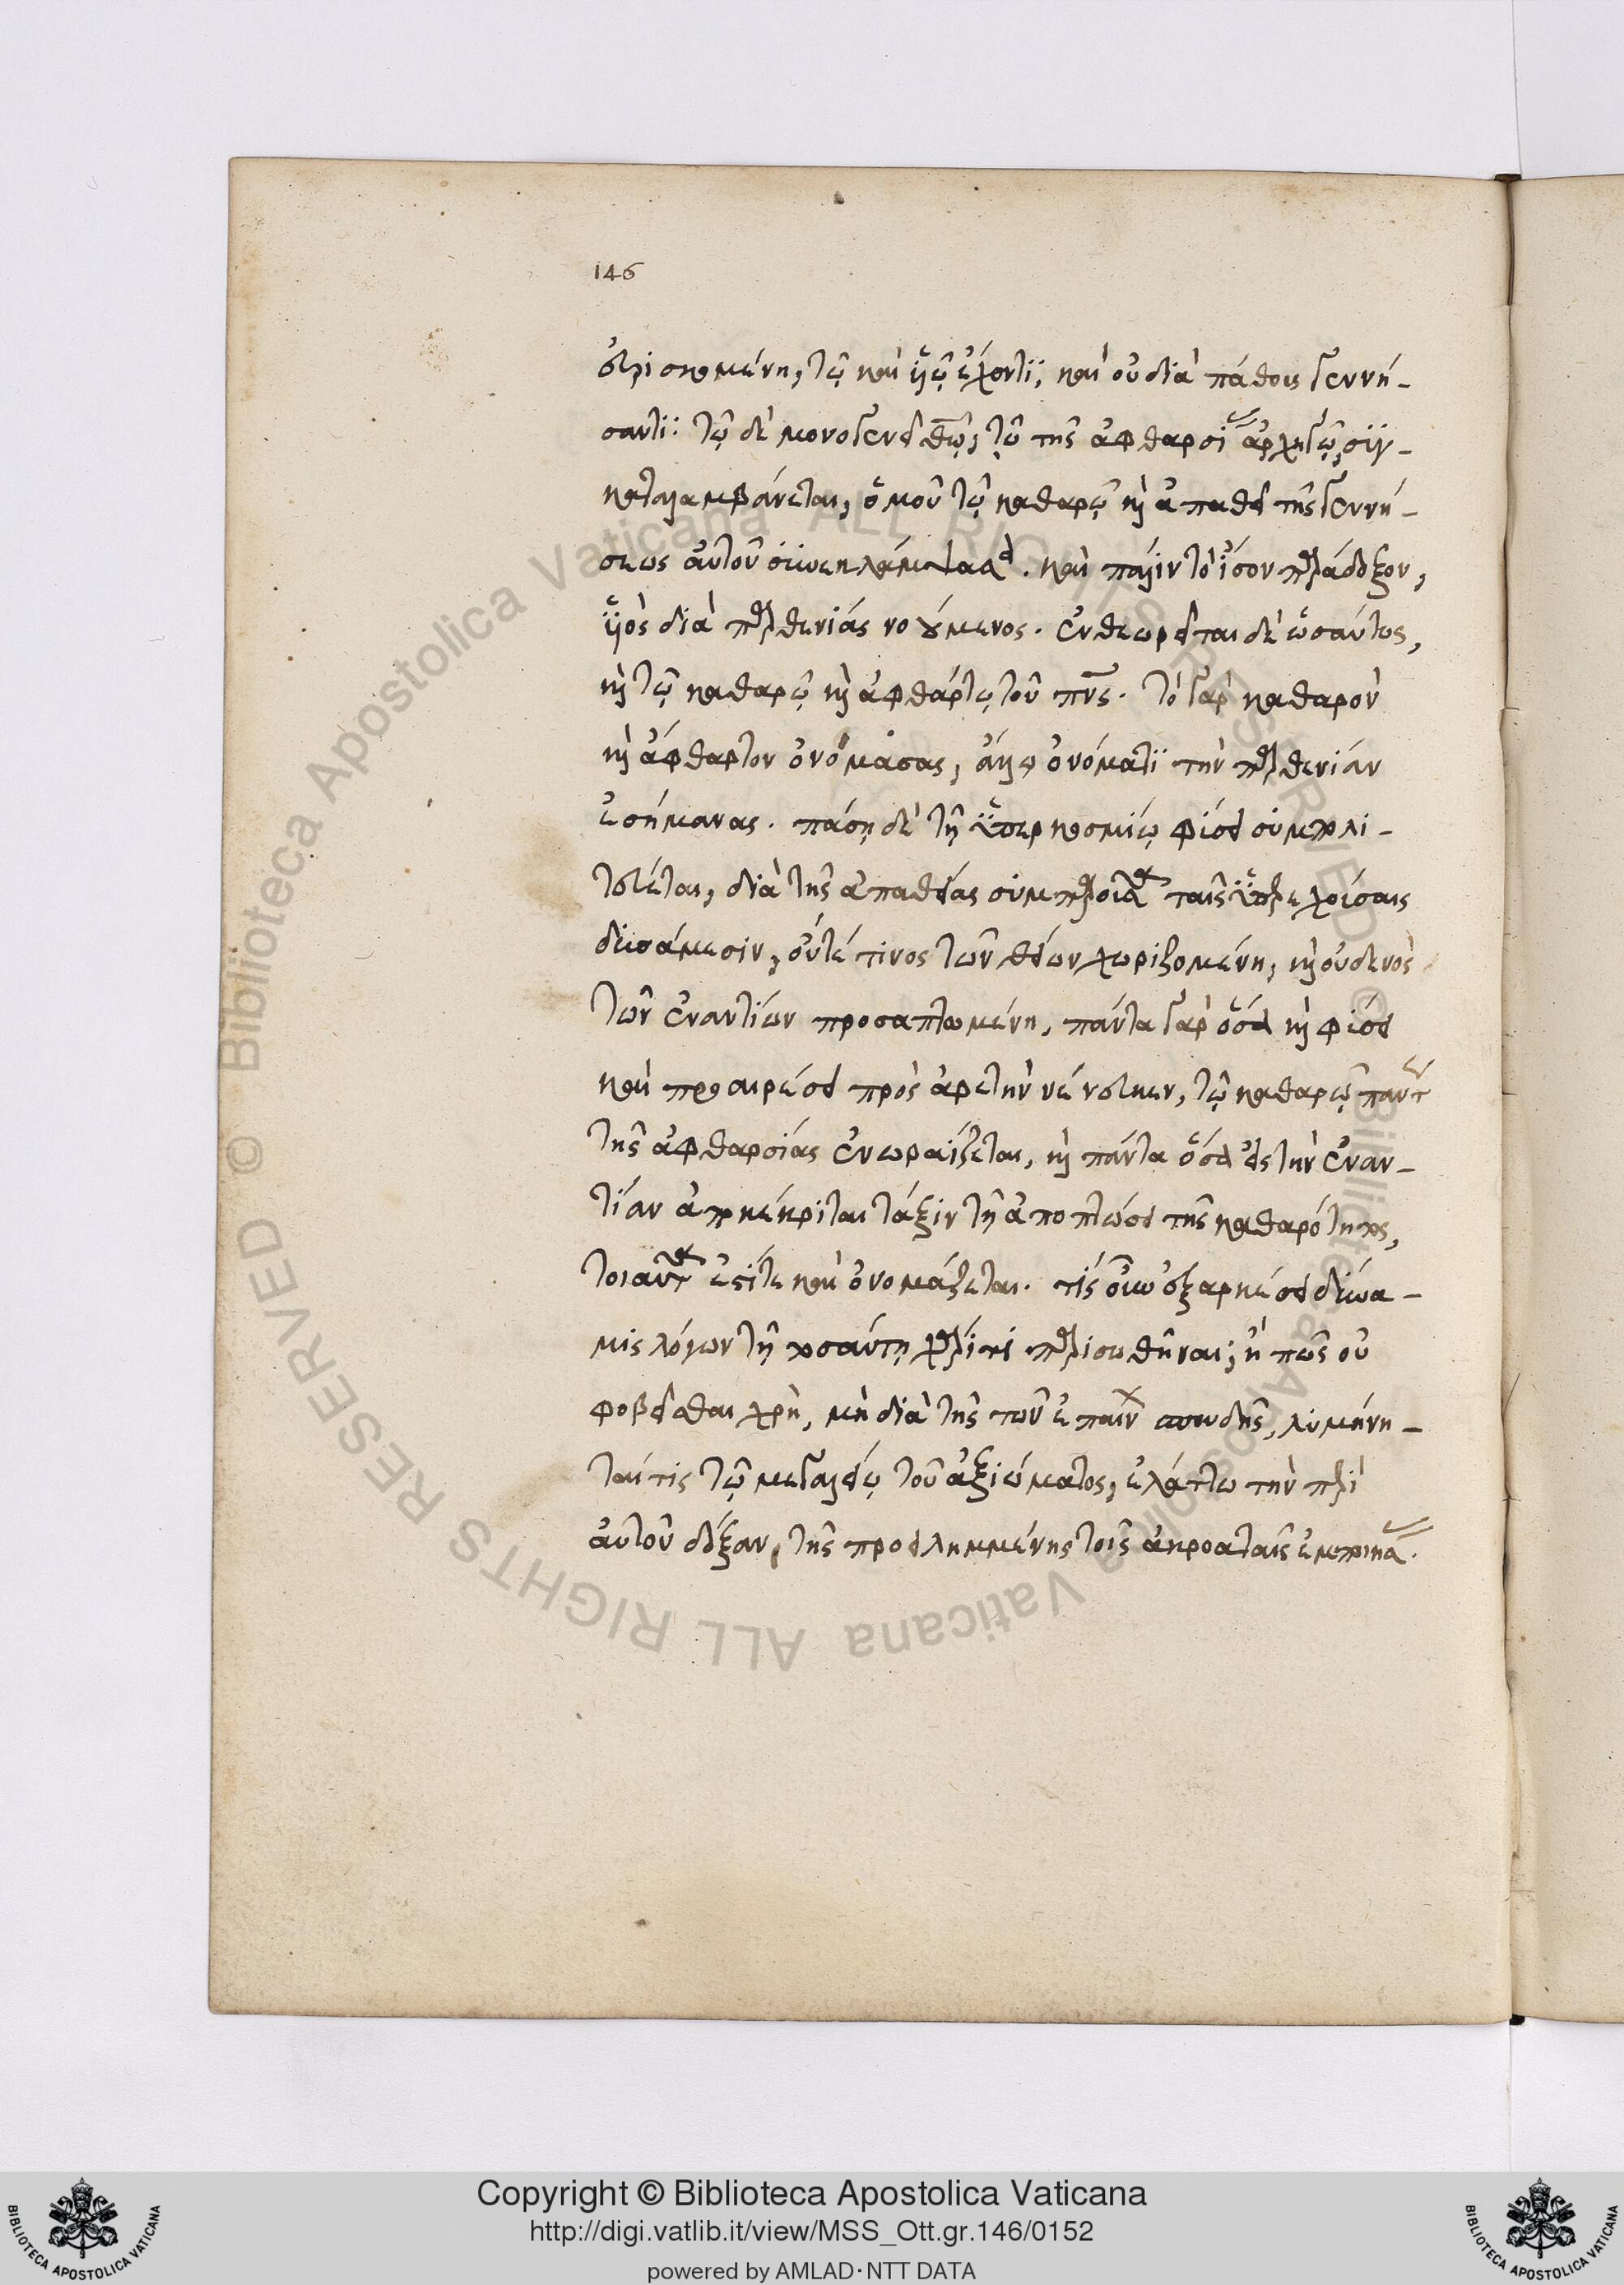 146
εὑρισκομένη, τῷ καὶ υἱῷ ἔχοντι, καὶ οὐ διὰ πάθους γεννή-
σαντι· τῷ δὲ μονογενεῖ θεῷ, τῷ τῆς ἀφθαρσίας ἀρχηγῷ, συγ-
καταλαμβάνεται, ὁμοῦ τῷ καθαρῷ κ̀ ἀπαθεῖ τῆς γεννή-
σεως αὐτοῦ συνεκλάμψασα. καὶ πάλιν τὸ ἴσον παράδοξον,
υἱὸς διὰ παρθενίας νοούμενος. ἐνθεωρεῖται δὲ ὡσαύτως,
κ̀ τῷ καθαρῷ κ̀ ἀφθάρτῳ τοῦ πνς. τὸ γὰρ καθαρὸν
κ̀ ἄφθαρτον ὀνομάσας, ἄλλῳ ὀνόματι τὴν παρθενίαν
ἐσήμανας. πάσῃ δὲ τῇ ὑπερκοσμίῳ φύσει συμπολι-
τεύεται, διὰ τῆς ἀπαθείας συμπαροῦσα ταῖς ὑπερεχούσαις
δυνάμεσιν, οὔτε τινος τῶν θείων χωριζομένη, κ̀ οὐδενὸς
τῶν ἐναντίων προσαπτομένη, πάντα γὰρ ὅσα κ̀ φύσει
καὶ προαιρέσει πρὸς ἀρετὴν νένευκεν, τῷ καθαρῷ πάντως
τῆς ἀφθαρσίας ἐνωραΐζεται, κ̀ πάντα ὅσα εἰς τὴν ἐναν-
τίαν ἀποκέκριται τάξιν τῇ ἀποπτώσει τῆς καθαρότητος,
τοιαῦτα ἐστί τε καὶ ὀνομάζεται. τίς οὖν ἐξαρκέσει δύνα-
μις λόγων τῇ τοσαύτῃ χάριτι παρισωθῆναι; ἢ πῶς οὐ
φοβεῖσθαι χρὴ, μὴ διὰ τῆς τῶν ἐπαίνων σπουδῆς, λυμήνη-
ταί τις τῷ μεγαλείῳ τοῦ ἀξιώματος, ἐλάττω τὴν περὶ
αὐτοῦ δόξαν, τῆς προειλημμένης τοῖς ἀκροαταῖς ἐμποιήσας.
Copyright © Biblioteca Apostolica Vaticana
http://digi.vatlib.it/view/MSS_Ott.gr.146/0152
powered by AMLAD·NTT DATA